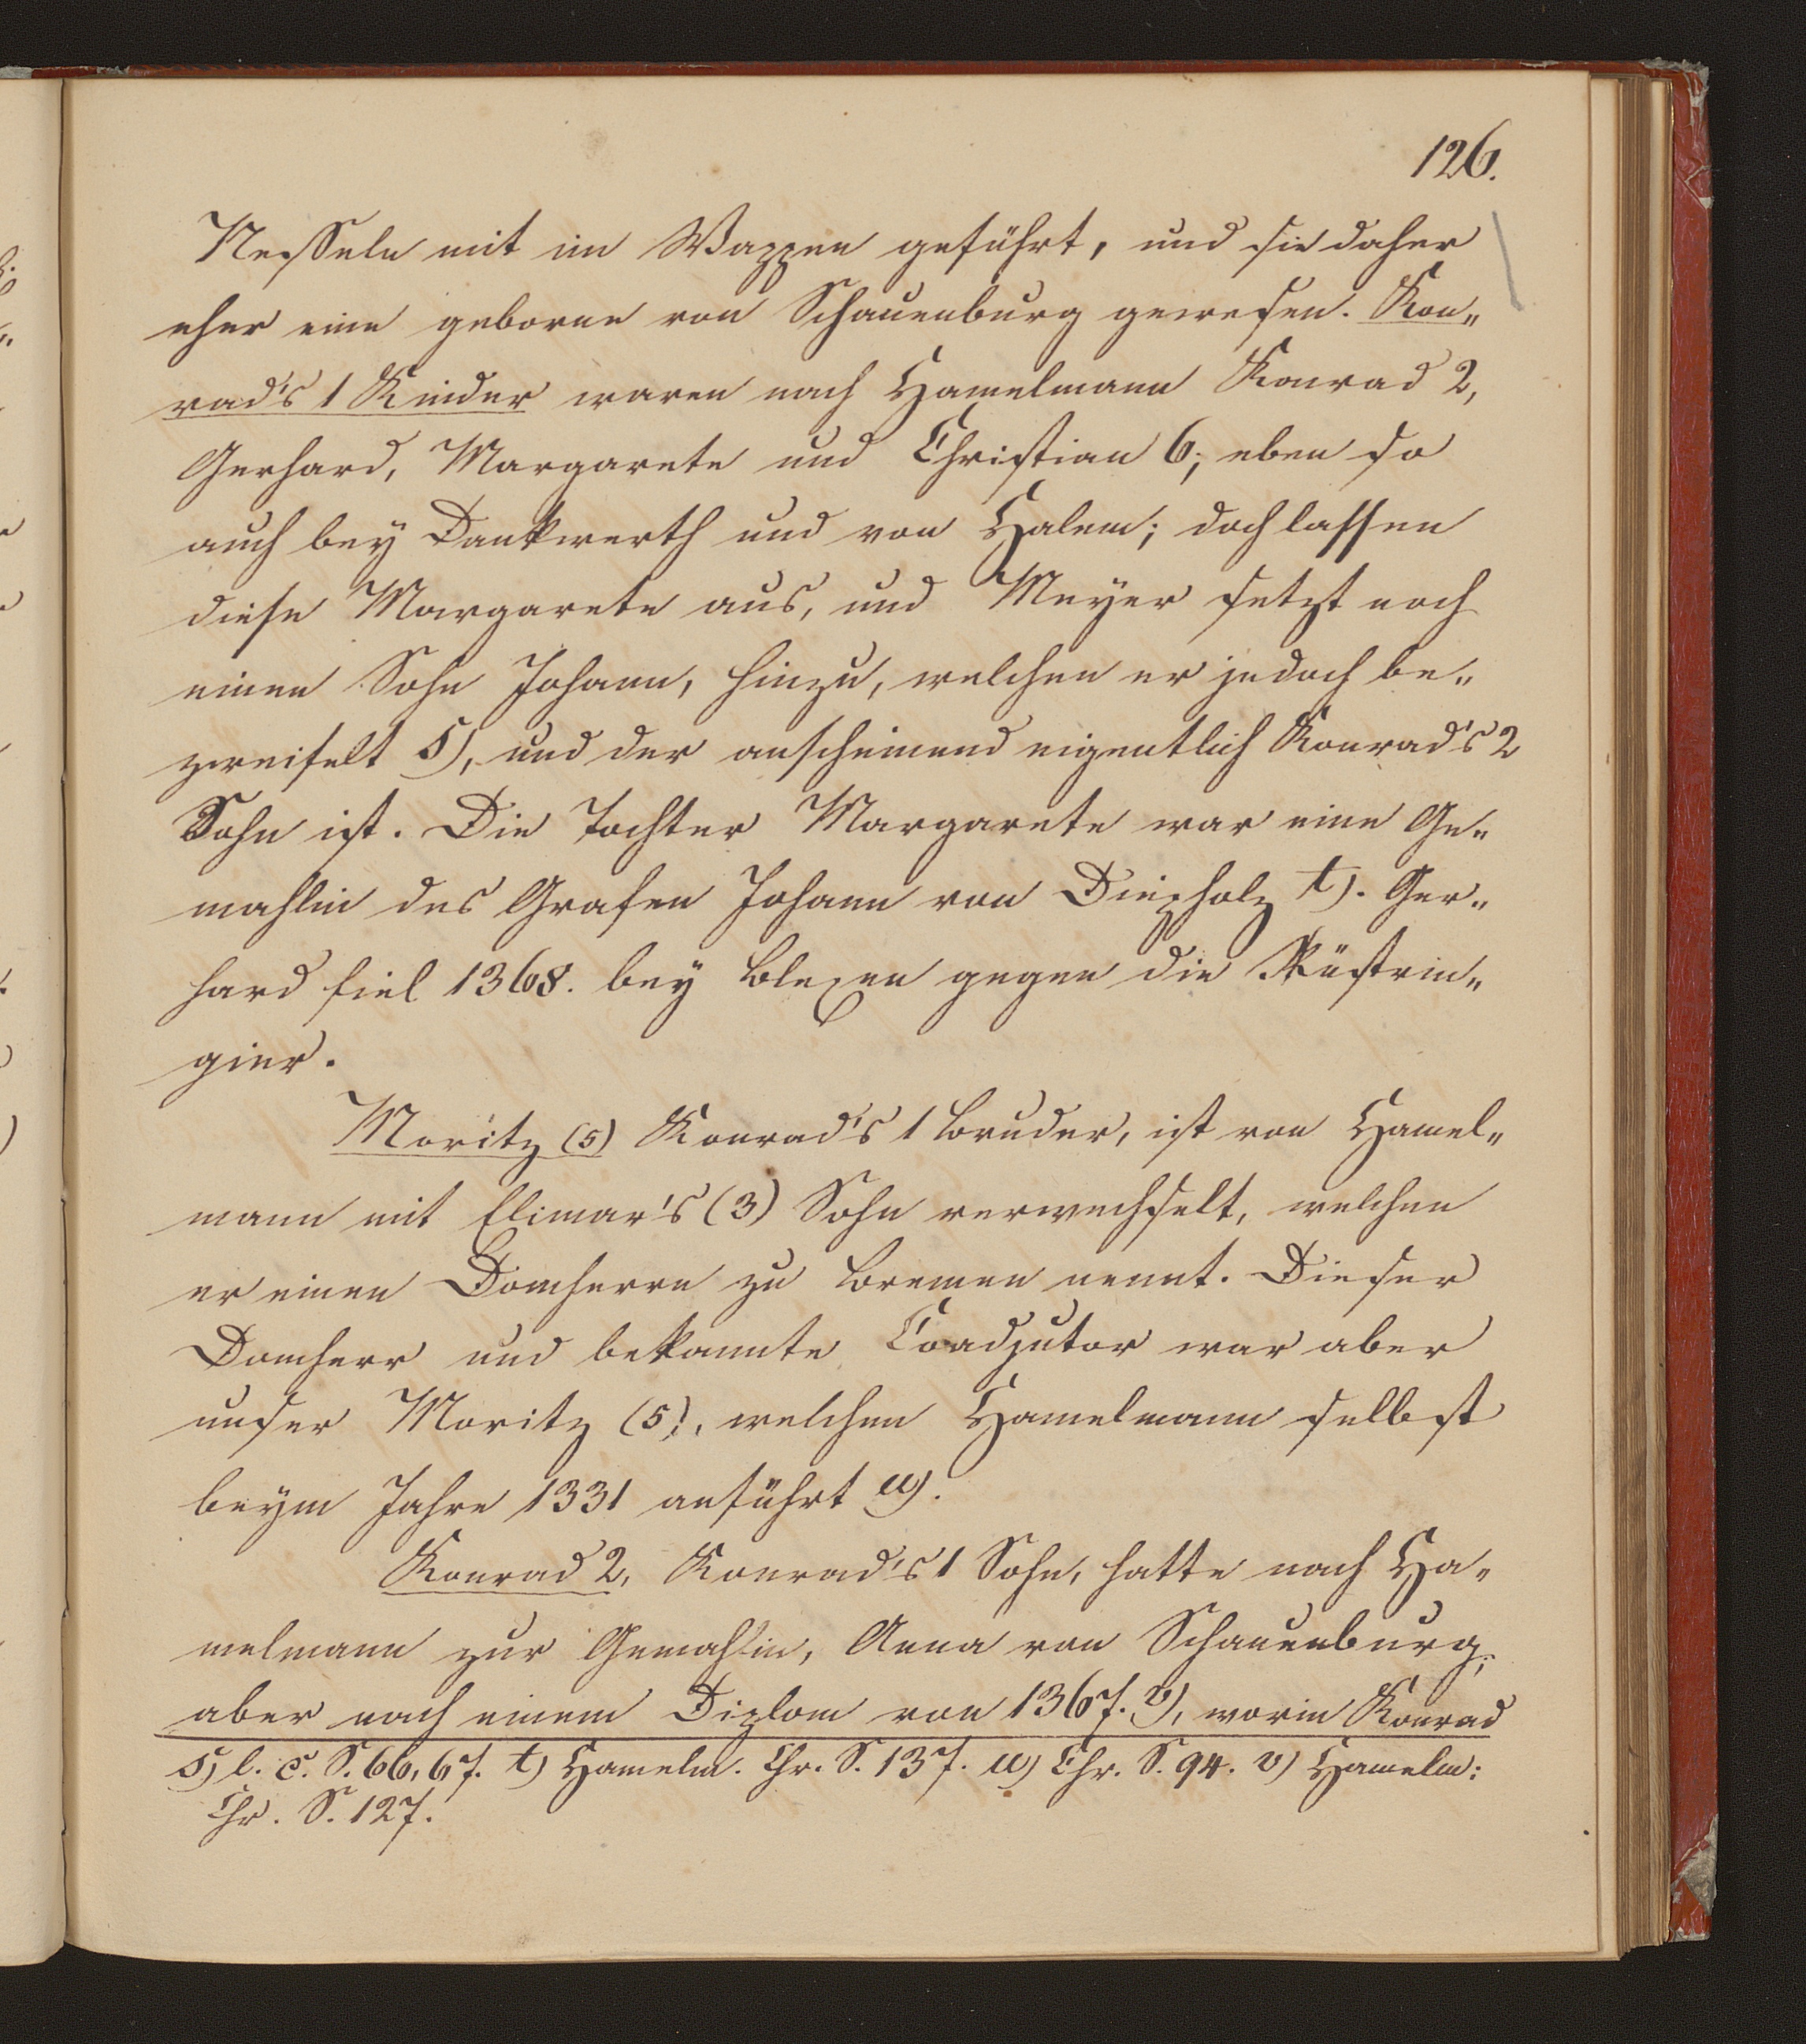 126.
Nesseln mit im Wappen geführt, und sie daher
eher eine geborne von Schauenburg gewesen. Kon„
rad's 1 Kinder waren nach Hamelmann Konrad 2,
Gerhard, Margarete und Christian 6; eben so
auch bey Dankwerth und von Halem; doch lassen
diese Margarete aus, und Meyer setzt noch
einen Sohn Johann, hinzu, welchen er jedoch be„
zweifelt s), und der anscheinend eigentlich Konrad's 2
Sohn ist. Die Tochter Margarete war eine Ge„
mahlin des Grafen Johann von Diepholz t). Ger„
hard fiel 1368. bey Blexen gegen die Rüstrin„
gier.
Moritz (5) Konrad's 1 Bruder, ist von Hamel„
mann mit Elimar's (3) Sohn verwechselt, welchen
er einen Domherrn zu Bremen nennt. Dieser
Domherr und bekannte Coadjutor war aber
unser Moritz (5), welchen Hamelmann selbst
beym Jahre 1331 anführt u).
Konrad 2, Konrad's 1 Sohn, hatte nach Ha„
melmann zur Gemahlin, Anna von Schauenburg;
aber nach einem Diplom von 1367. v), worin Konrad
s) l. c. S. 66, 67. t) Hamelm. Chr. S. 137. u) Chr. S. 94. v) Hamelm:
Chr. S. 127.